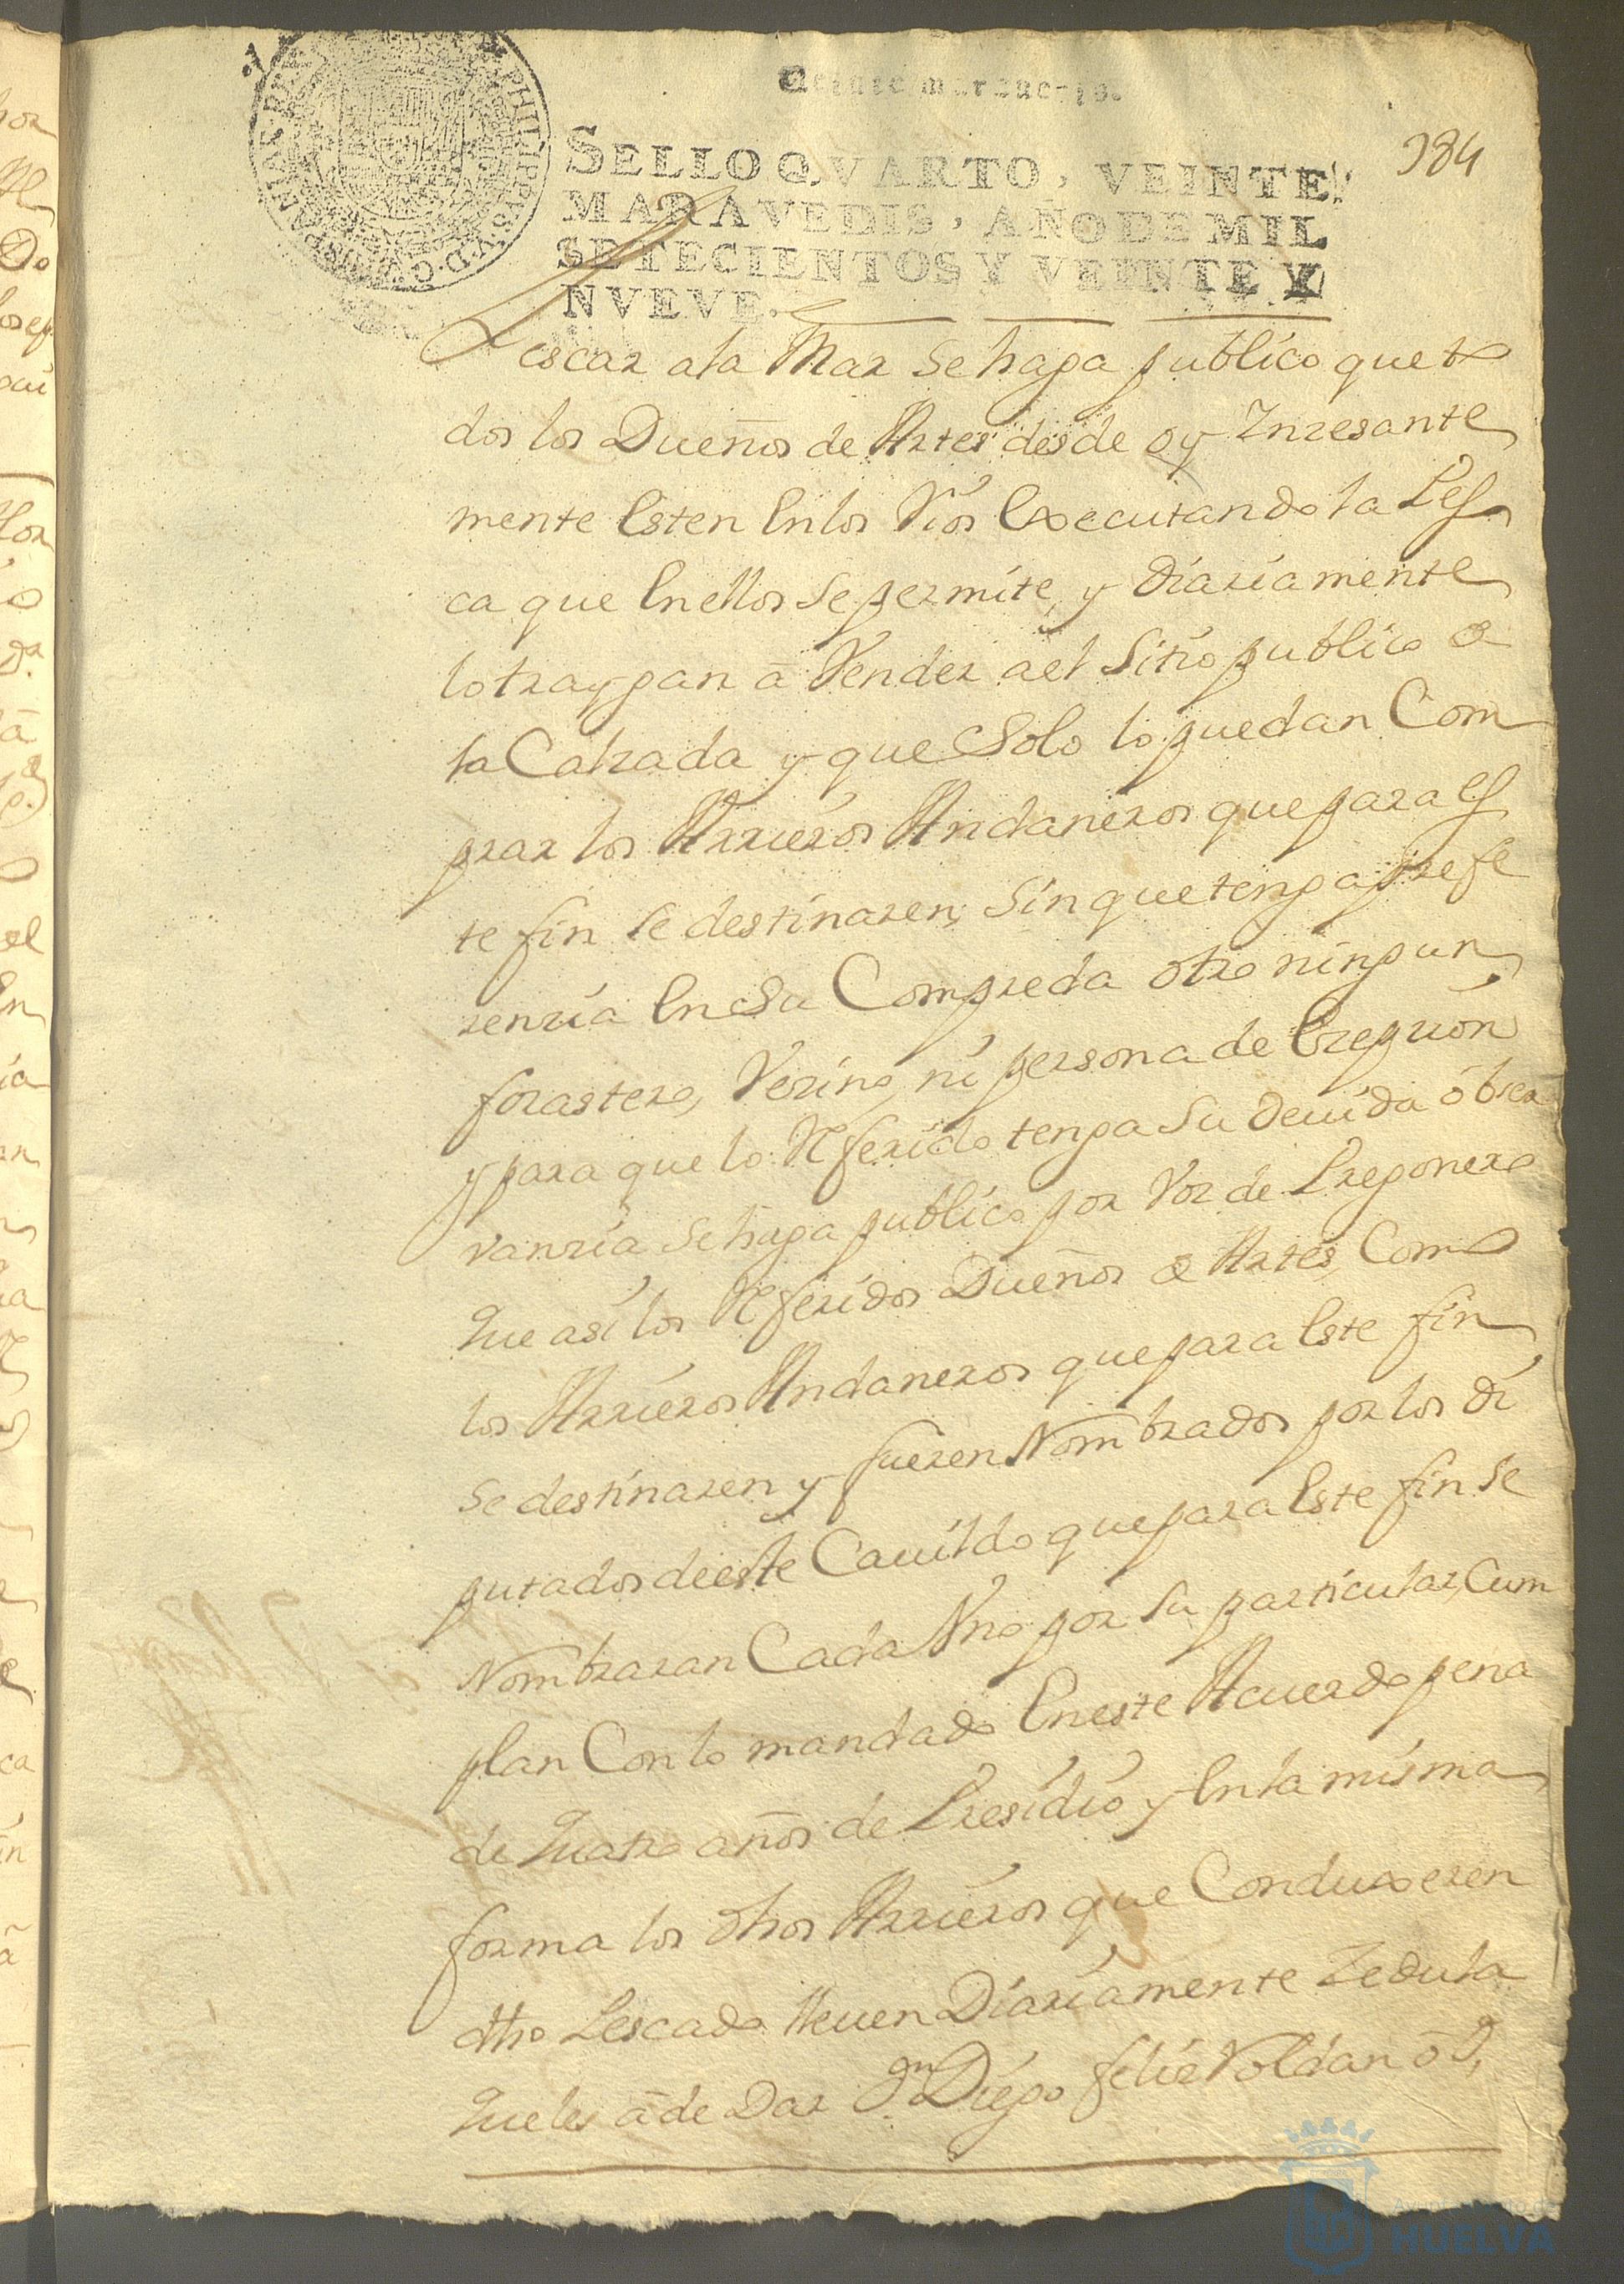 Veinte maravedis.
SELLO QVARTO, VEINTE
MARAVEDIS, AÑO DE MIL
SETECIENTOS Y VEINTE Y
NVEVE.
384
Pescar ala Mar se haga publico que to
dos los Dueños de Artes desde oy Inzesante
mente Esten En los Rios Executando la Pes
ca que En ellos se permite, y diariamente
lo traygan a Vender a el Sitio publico de
la Calzada y que Solo lo puedan Com
prar los Arrieros Andaneros que para es
te fin se destinaren, Sin que tenga prefe
renzia En Su Compreda otro ningun
forastero, Vezino, ni persona de Exepzion
y para que lo Referido tenga Su devida obser
vanzia Se haga publico por Voz de Pregonero
Que asi los Referidos Dueños de Artes, Como
los Arrieros Andaneros que para Este fin
Se destinaren y fueren Nombrados por los Di
putados de este Cavildo que para Este fin se
Nombraran Cada Uno por Su particular, Cum
plan Con lo mandado En este Acuerdo pena
de Quatro años de Presidio y En la misma
forma los dhos Arrieros que Conduxeren
dho Pescado lleven Diariamente Zedula
Que les a de Dar Dn Diego felix Roldan o Dn
HUELVA